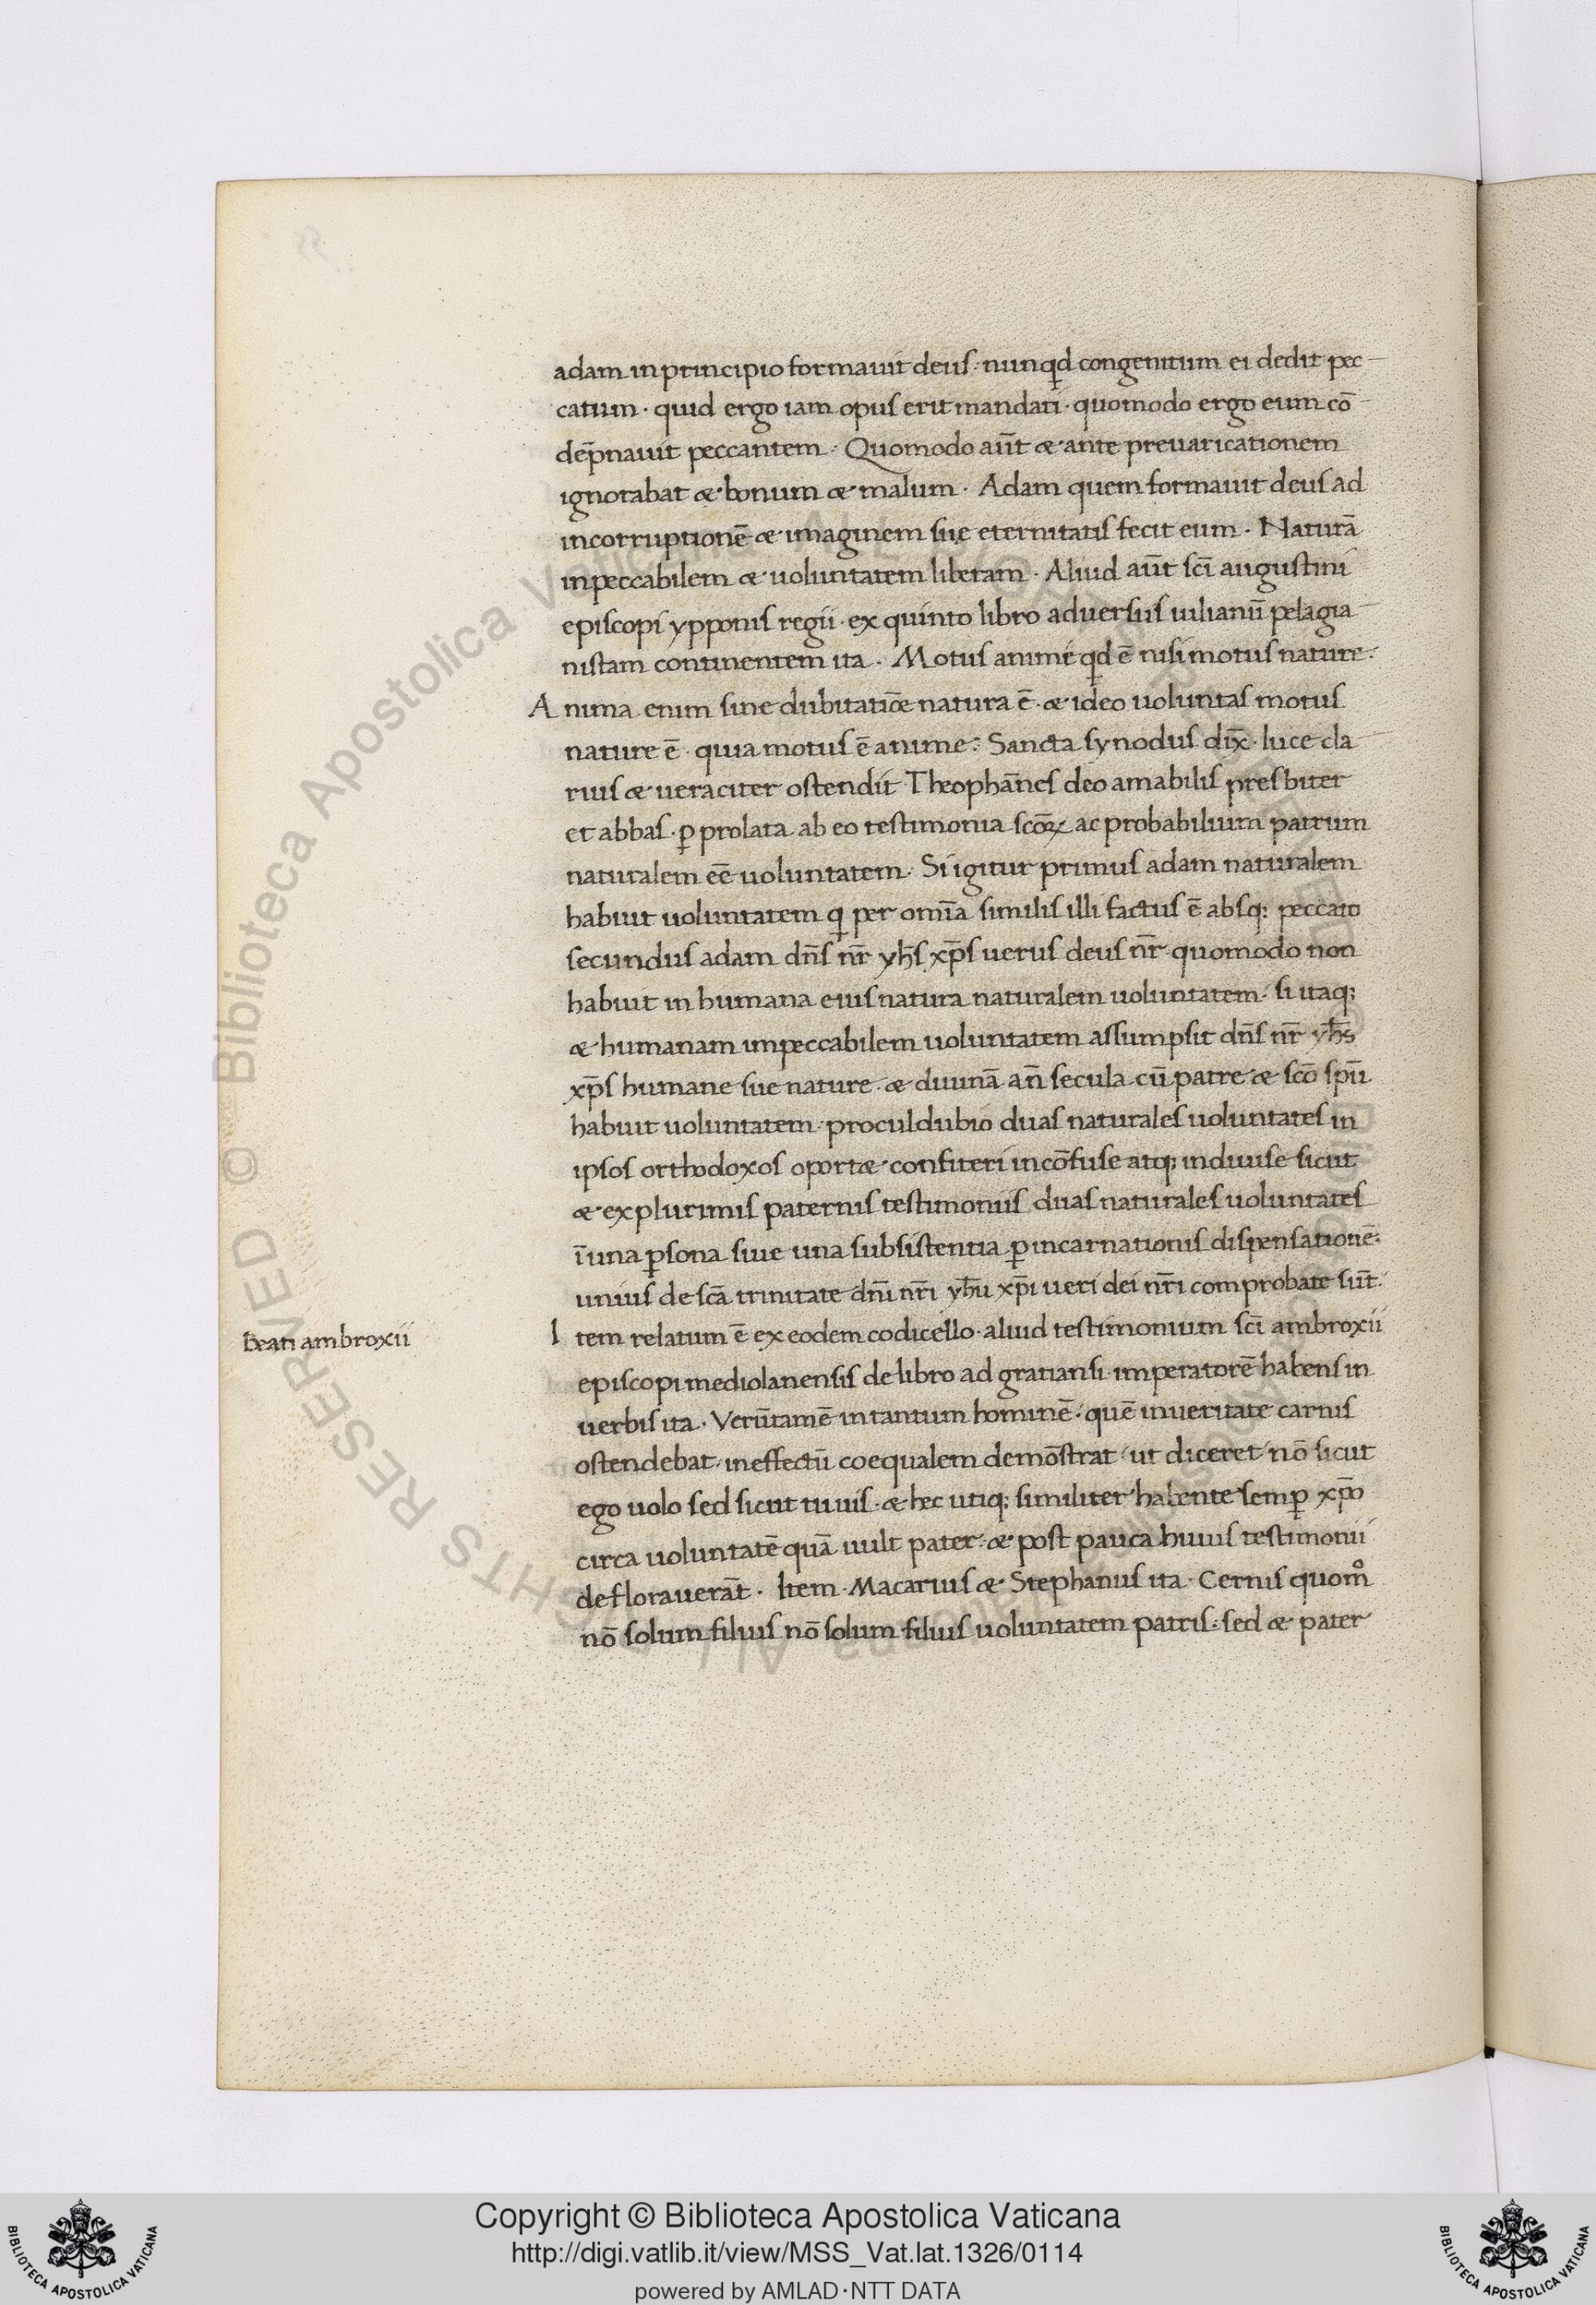 adam in principio formauit deus· nunqd congenitum ei dedit pec-
catum· quid ergo iam opus erit mandati· quomodo ergo eum cō-
dēpnauit peccantem· Quomodo aūt & ante preuaricationem
ignorabat & bonum & malum· Adam quem formauit deus ad
incorruptionē & imaginem sue eternitatis fecit eum· Naturā
inpeccabilem & uoluntatem liberam· Aliud aūt scī augustini
episcopi ypponis regii· ex quinto libro aduersus iulianū pelagia-
nistam continentem ita· Motus anime qd ē nisi motus nature·
Anima enim sine dubitatiōe natura ē· & ideo uoluntas motus
nature ē· quia motus ē anime· Sancta synodus dix̄· luce cla-
rius & ueraciter ostendit Theophānes deo amabilis presbiter
et abbas· ꝑ prolata ab eo testimonia scōꝝ ac probabilium patrum
naturalem eē uoluntatem· Si igitur primus adam naturalem
habuit uoluntatem q per omīa similis illi factus ē absq; peccato
secundus adam dn̄s nr̄ yhs̄ xp̄s uerus deus nr̄ quomodo non
habuit in humana eius natura naturalem uoluntatem· si itaq;
& humanam impeccabilem uoluntatem assumpsit dn̄s nr̄ yhs̄
xp̄s humane sue nature· & diuinā an̄ secula cū patre & scō sp̄u
habuit uoluntatem· proculdubio duas naturales uoluntates in
ipsos orthodoxos oport& confiteri incōfuse atq; indiuise sicut
& ex plurimis paternis testimoniis duas naturales uoluntates
ī una ꝑsona siue una subsistentia ꝑ incarnationis dispensationē·
unius de scā trinitate dn̄i nr̄i yhū xp̄i ueri dei nr̄i comprobate sūt·
beati ambroxii
Item relatum ē ex eodem codicello· aliud testimonium scī ambroxii
episcopi mediolanensis de libro ad gratiansi imperatorē habens in
uerbis ita· Verūtamē in tantum hominē· quē in ueritate carnis
ostendebat· in effectū coequalem demōstrat· ut diceret nō sicut
ego uolo sed sicut tu uis· & hec utiq; similiter habente semꝑ xp̄o
circa uoluntatē quā uult pater· & post pauca huius testimonii
deflorauerāt· Item Macarius & Stephanus ita· Cernis quomͦ
nō solum filius nō solum filius uoluntatem patris· sed & pater
© Biblioteca Apostolica Vaticana ALL RIGHTS RESERVED
Copyright © Biblioteca Apostolica Vaticana
http://digi.vatlib.it/view/MSS_Vat.lat.1326/0114
powered by AMLAD·NTT DATA
BIBLIOTECA APOSTOLICA VATICANA
BIBLIOTECA APOSTOLICA VATICANA